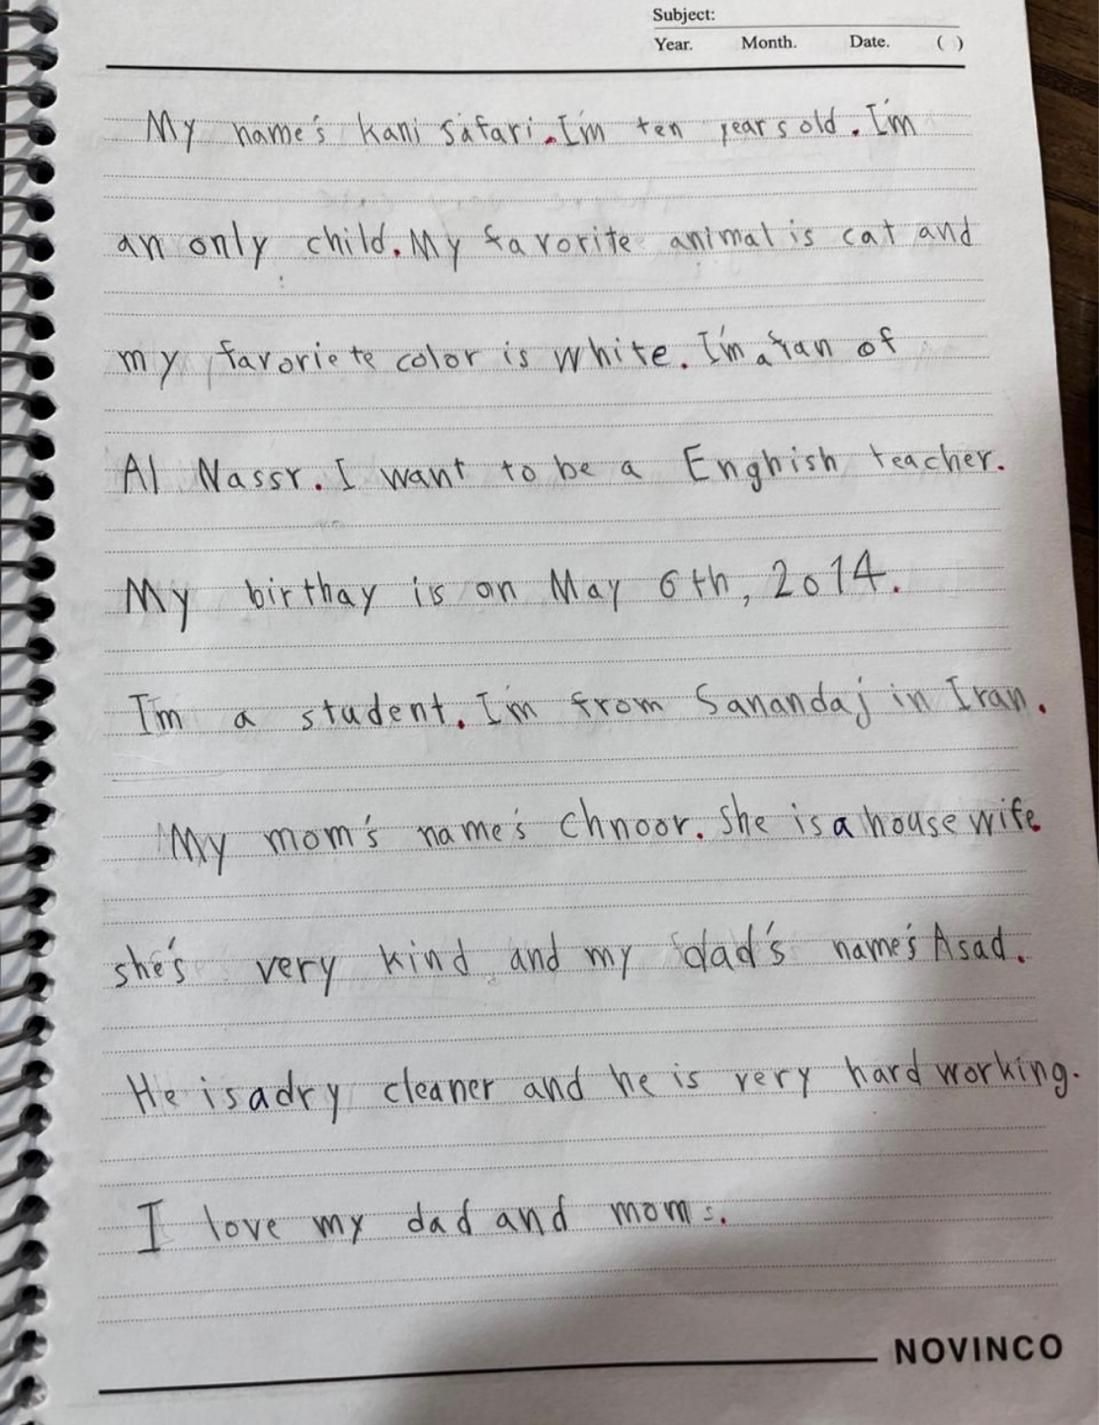 Subject:
Year. Month. Date. ( )
My name's kani safari. I'm ten years old. I'm
an only child. My favorite animal is cat and
my favoriete color is white. I'm a fan of
Al Nassr. I want to be a Enghish teacher.
My birthay is on May 6th, 2014.
I'm a student. I'm from Sanandaj in Iran.
My mom's name's Chnoor. She is a house wife.
she's very kind and my dad's name's Asad.
He is a dry cleaner and he is very hard working.
I love my dad and moms.
NOVINCO